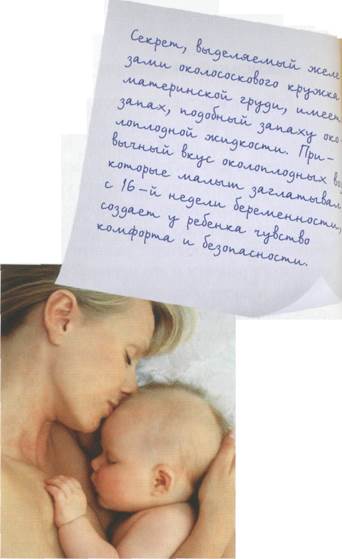 Секрет, выделяемый желе
зами околососкового кружка
материнской груди, имеет
запах, подобный запаху око-
лоплодной жидкости. При-
вычный вкус околоплодных во
которые малыш заглатывал
с 16-й недели беременности,
создает у ребенка чувство
комфорта и безопасности.